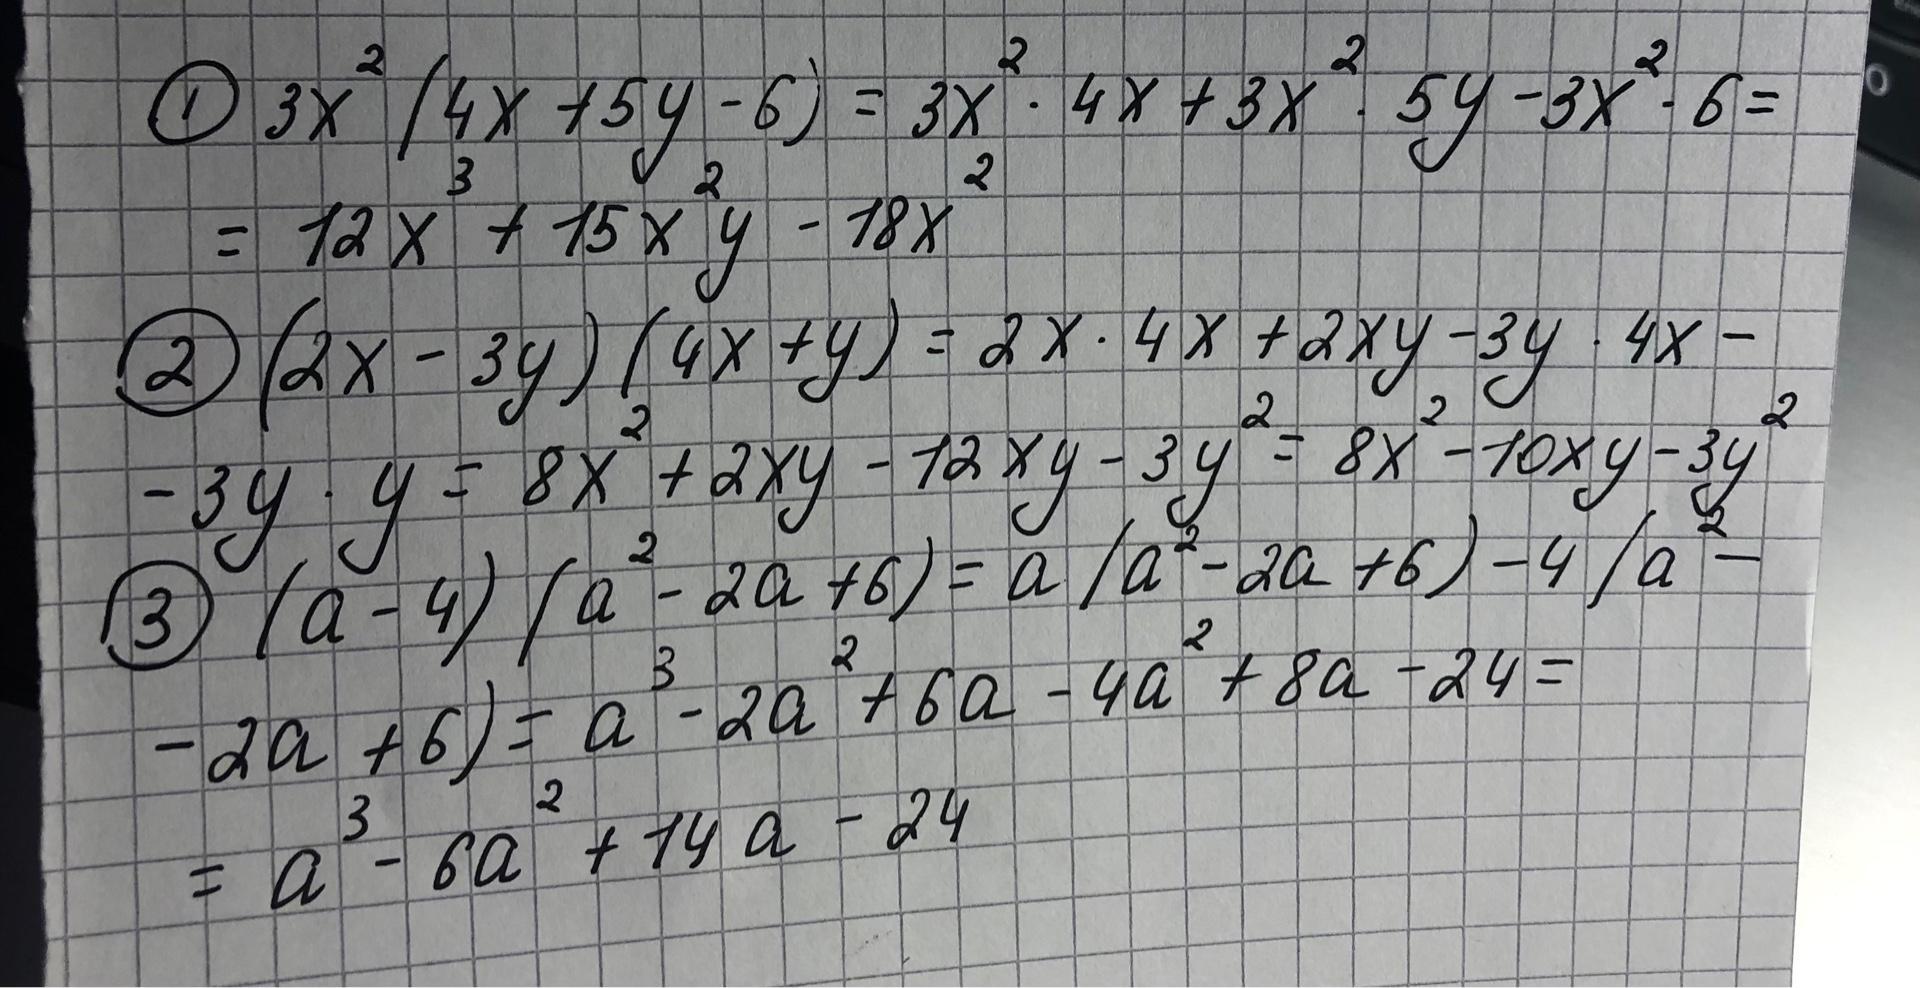 ① 3x² (4x + 5y - 6) = 3x² · 4x + 3x² · 5y - 3x² · 6 =
= 12x³ + 15x²y - 18x²
② (2x - 3y) (4x + y) = 2x · 4x + 2xy - 3y · 4x -
- 3y · y = 8x² + 2xy - 12xy - 3y² = 8x² - 10xy - 3y²
③ (a - 4) (a² - 2a + 6) = a (a² - 2a + 6) - 4 (a² -
- 2a + 6) = a³ - 2a² + 6a - 4a² + 8a - 24 =
= a³ - 6a² + 14a - 24